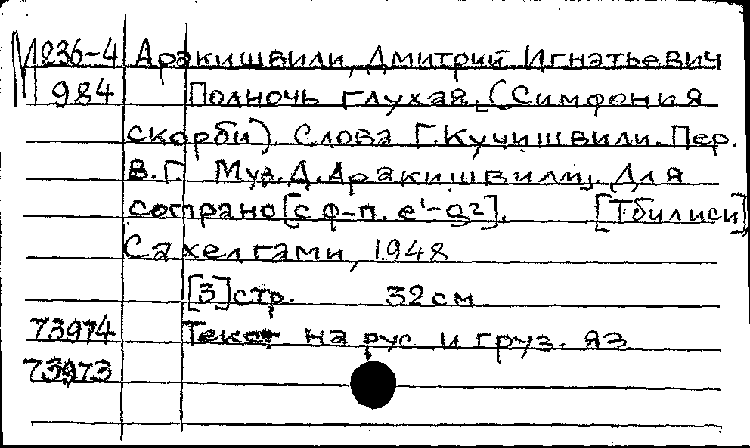 М236-4 Аракишвили, Дмитрий Игнатьевич
984 Полночь глухая. (Симфония
скорби). Слова Г. Кучишвили. Пер.
В.Г. Муз. Д. Аракишвили. Для
сопрано [с ф-п. e¹-g²]. [Тбилиси]
Сахелгами, 1948
[3] стр. 32 см
73974 Текст на рус. и груз. яз
73973